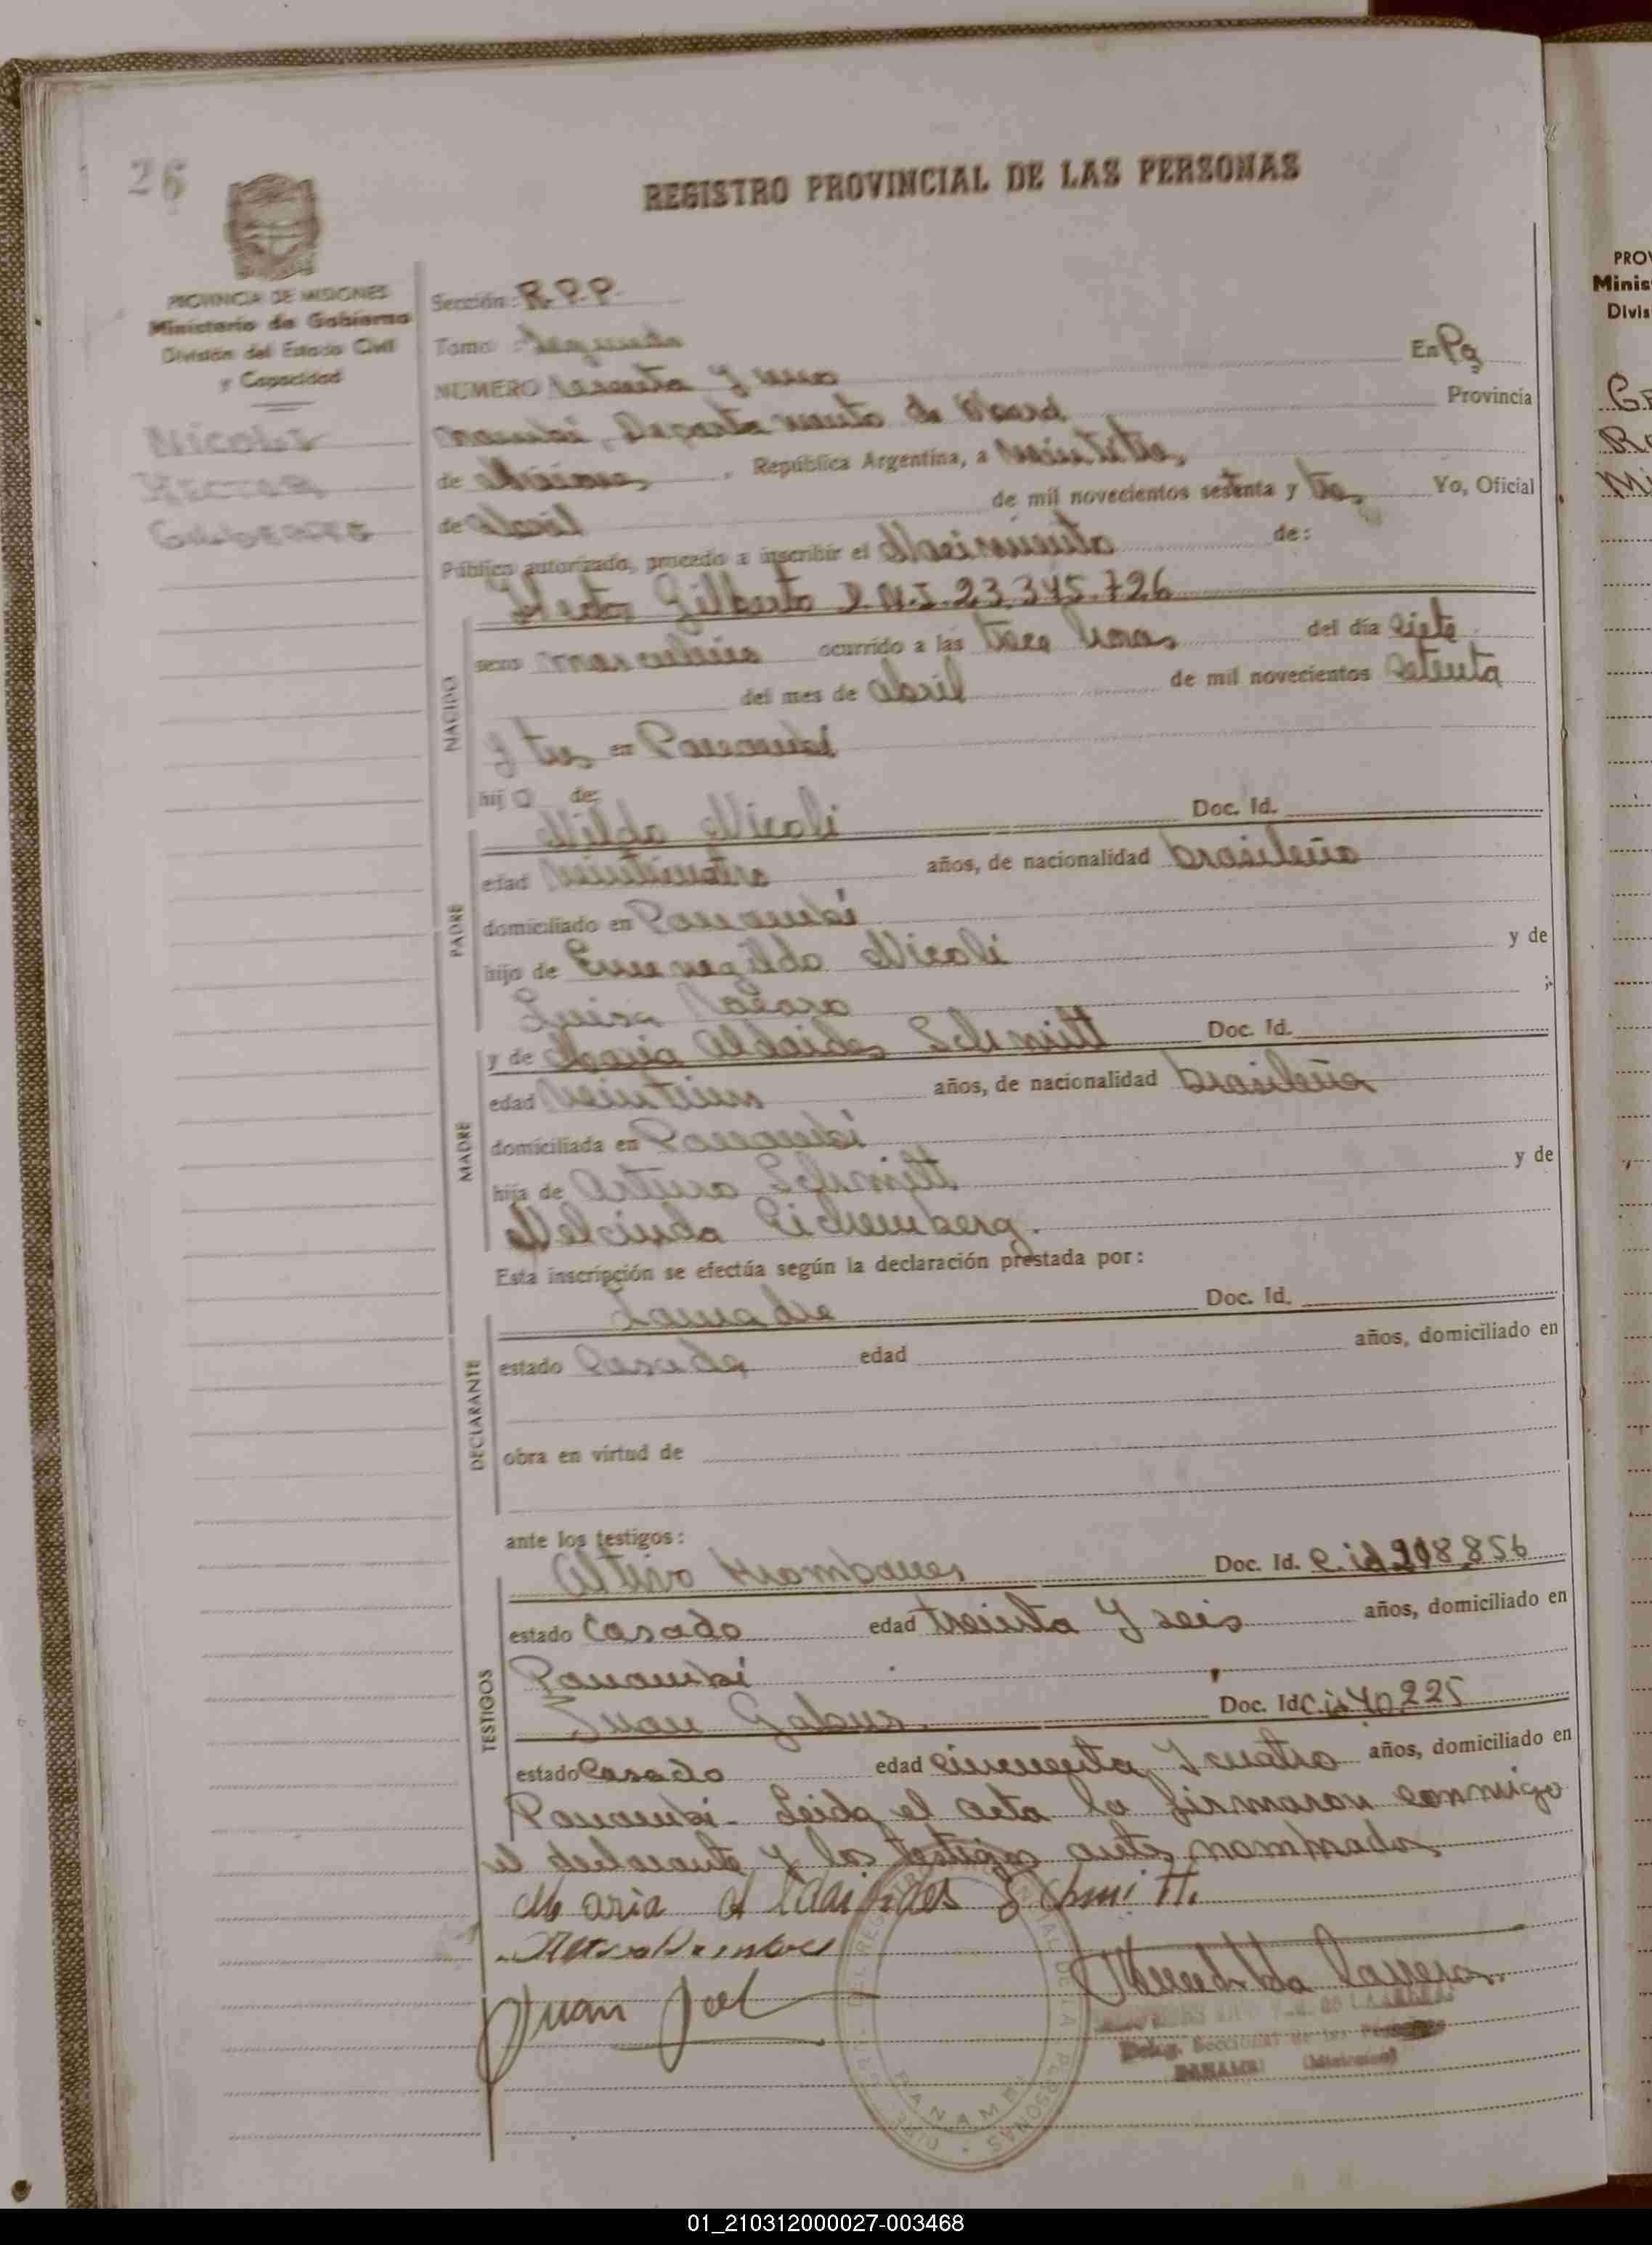 26
REGISTRO PROVINCIAL DE LAS PERSONAS
PROVINCIA DE MISIONES
Ministerio de Gobierno
División del Estado Civil
y Capacidad
NICOLI
HECTOR
GILBERTO
Sección: R.P.P.
Tomo: Segundo
NUMERO sesenta y uno En Pa
nambí, Departamento de Provincia
de Misiones, República Argentina, a veintitres
de Abril de mil novecientos setenta y tres Yo, Oficial
Público autorizado, procedo a inscribir el Nacimiento de:
Hector Gilberto D.N.I. 23.345.726
NACIDO
sexo masculino ocurrido a las trece horas del día siete
del mes de abril de mil novecientos setenta
y tres en Panambí
hijo de:
PADRE
Nildo Nicoli Doc. Id.
edad veinticuatro años, de nacionalidad brasileña
domiciliado en Panambí
hijo de Ermenegildo Nicoli y de
Luisa ;
MADRE
y de Maria Aldaides Schmitt Doc. Id.
edad años, de nacionalidad brasileña
domiciliada en Panambí
hija de Arturo Schmitt y de
Melcinda Eichemberg.
Esta inscripción se efectúa según la declaración prestada por:
DECLARANTE
La madre Doc. Id.
estado Casada edad años, domiciliado en
obra en virtud de
ante los testigos:
TESTIGOS
Doc. Id. C.id 208.856
estado Casado edad treinta y seis años, domiciliado en
Panambí
Juan Doc. Id C.id 40.225
estado Casado edad cincuenta y cuatro años, domiciliado en
Panambí. Leida el acta la firmaron conmigo
el declarante y los testigos antes nombrados
Maria Aldaides Schmitt.
Juan
PANAMBI (Misiones)
PROV
Minis
Divis
01_210312000027-003468